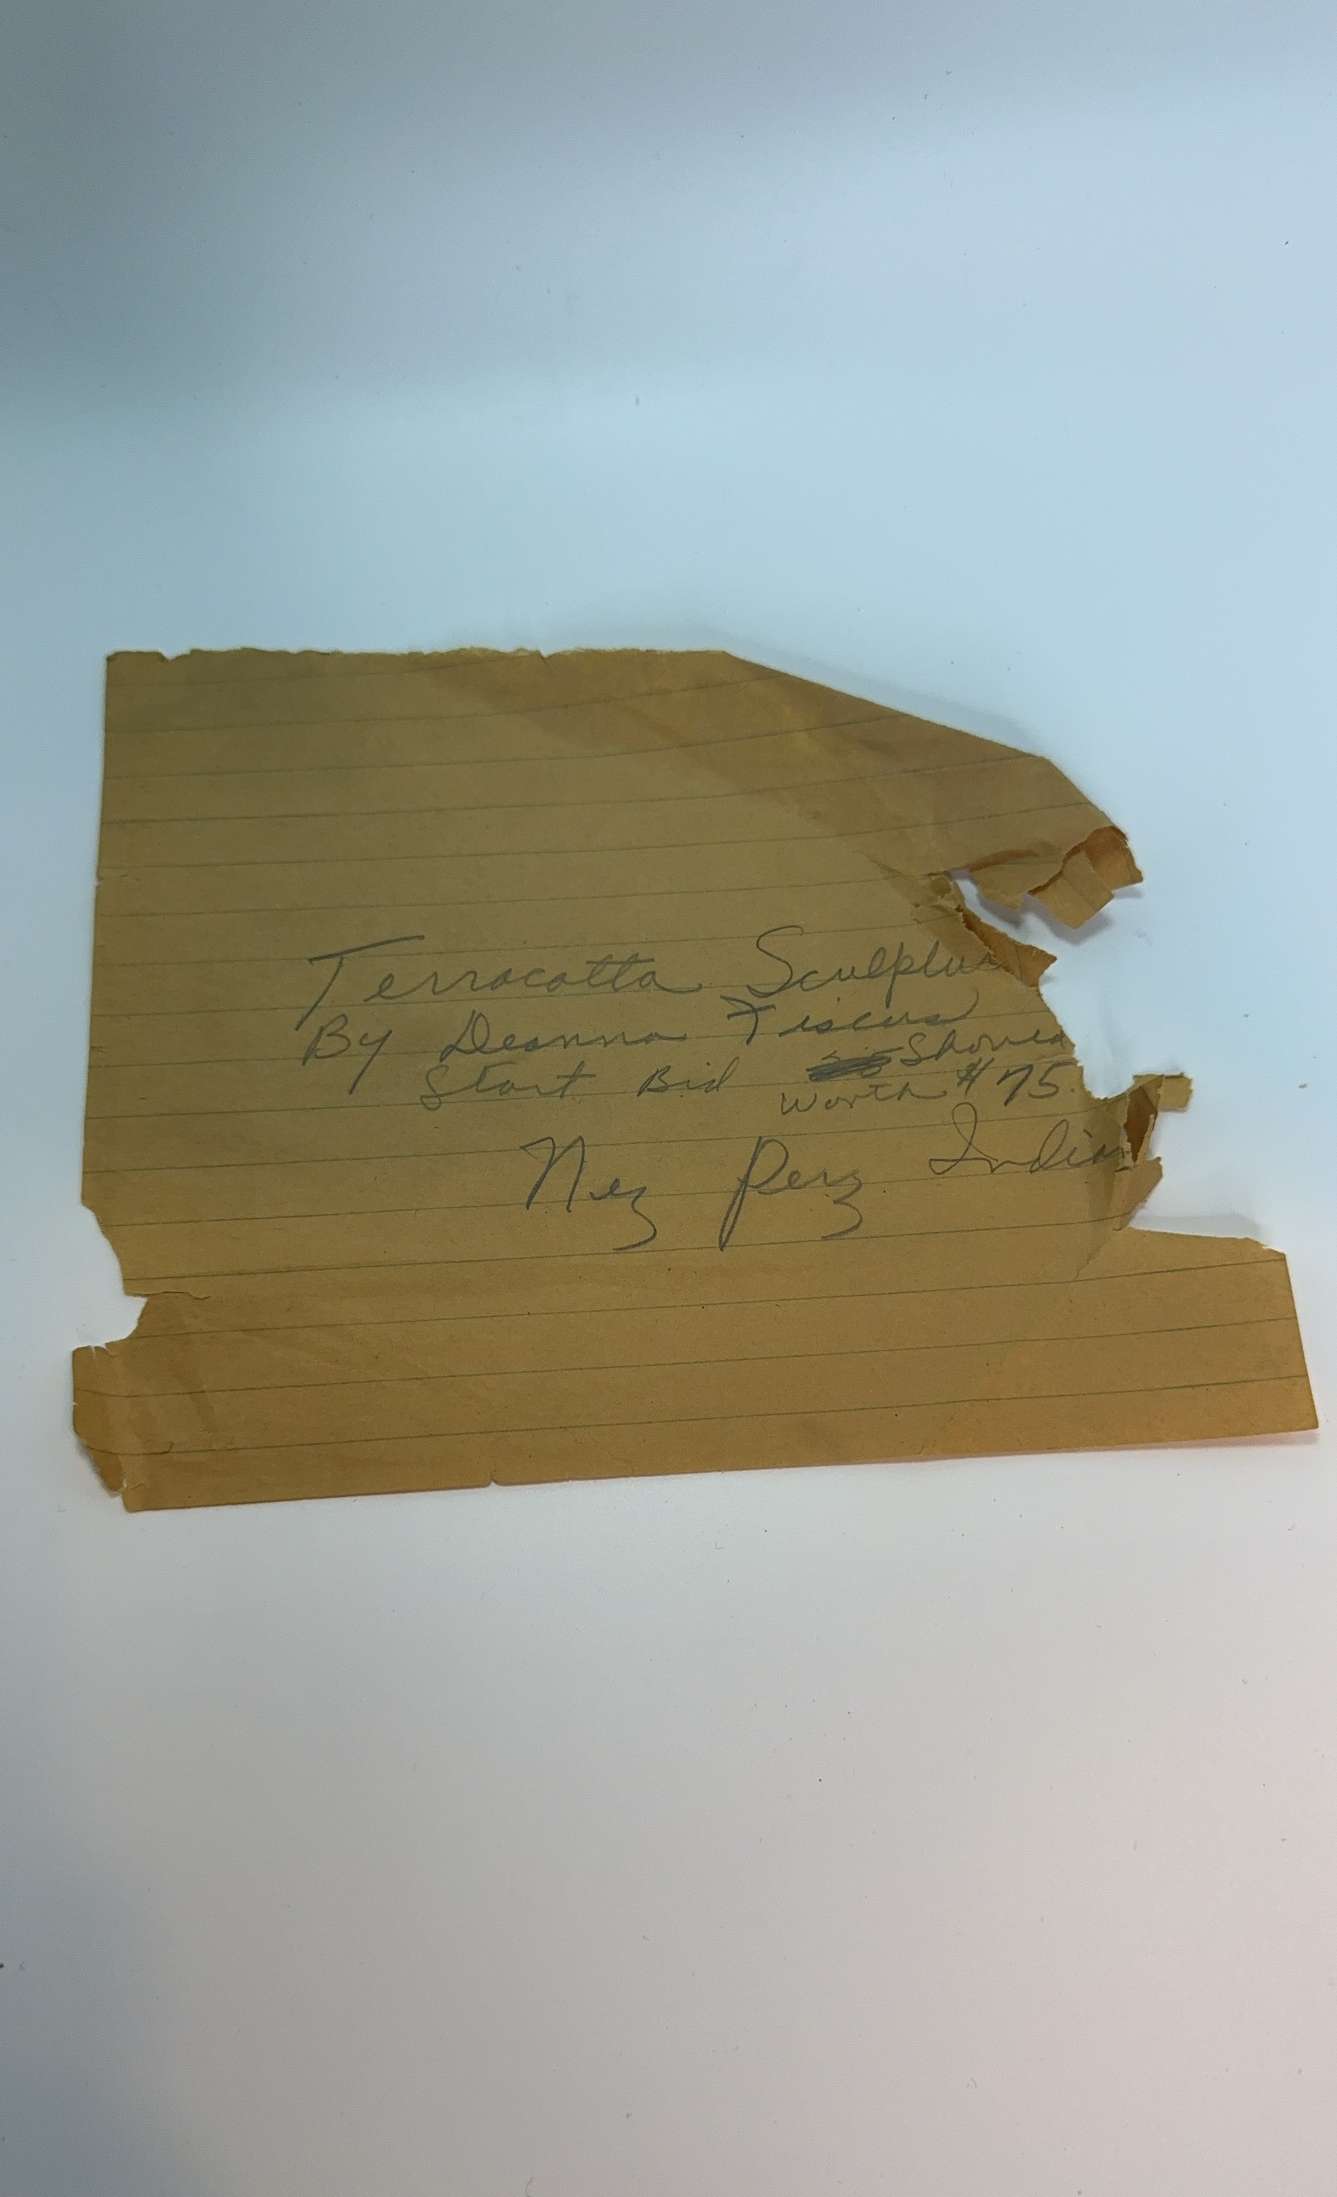 Terracotta Sculptu
By Deanna Fiscus
Start Bid Showed
Worth $75.
Nez Perz Indian